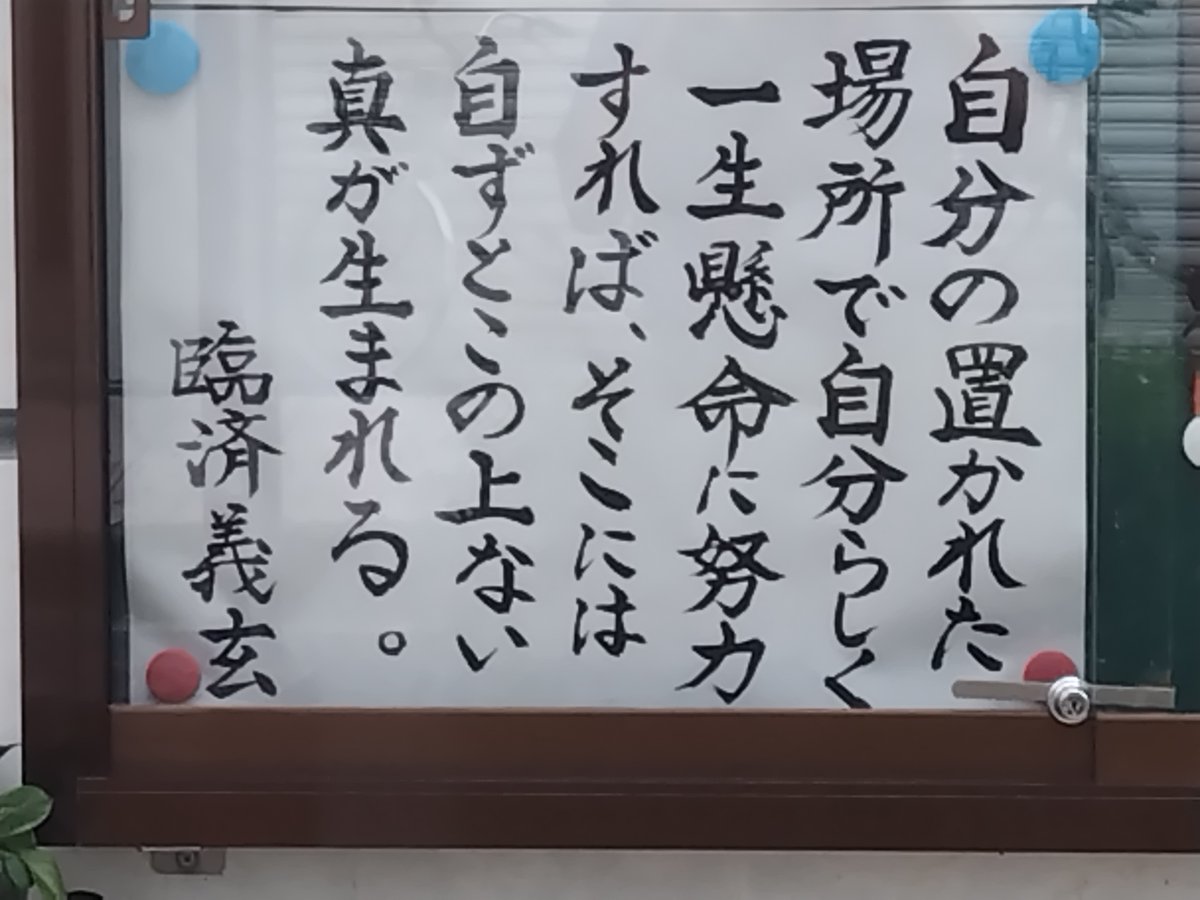 自分の置かれた
場所で自分らしく
一生懸命に努力
すれば、そこには
自ずとこの上ない
真が生まれる。
臨済義玄